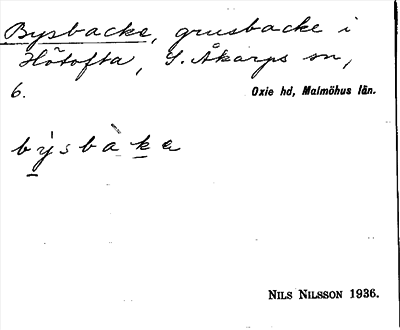 Bysbacke, grusbacke i
Hötofta, S. Åkarps sn,
6. Oxie hd, Malmöhus län.
bỳsbàka
NILS NILSSON 1936.